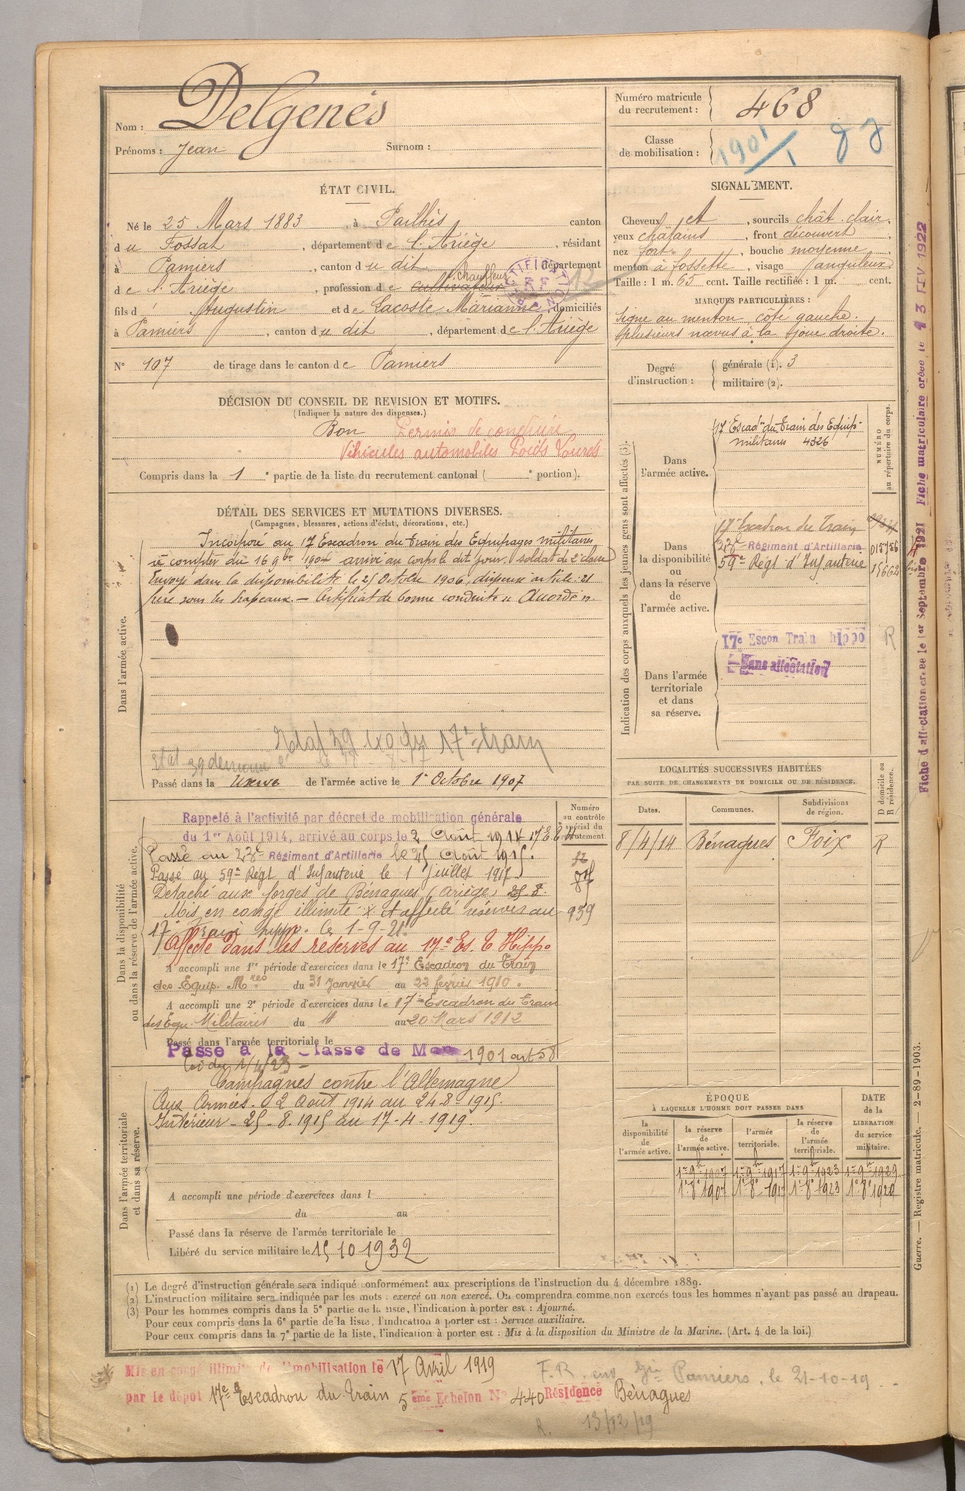 Nom : Delgenès
Prénoms : Jean Surnom :
Numéro matricule du recrutement : 468
Classe de mobilisation : 1901
ÉTAT CIVIL.
Né le 25 Mars 1883, à Pailhès canton
du Fossat, département de l'Ariège, résidant
à Pamiers, canton du dit, département
de l'Ariège, profession de Cultivateur Chauffeur
fils d'Augustin et de Lacoste Marianne, domiciliés
à Pamiers, canton du dit, département de l'Ariège
N° 107 de tirage dans le canton de Pamiers
SIGNALEMENT.
Cheveux et, sourcils chât. clair.
yeux châtains, front découvert
nez fort, bouche moyenne
menton à fossette, visage anguleux
Taille : 1 m. 65 cent. Taille rectifiée : 1 m. cent.
MARQUES PARTICULIÈRES :
Signe au menton côté gauche.
plusieurs nævus à la joue droite.
Degré d'instruction : générale (1). 3
militaire (2).
DÉCISION DU CONSEIL DE REVISION ET MOTIFS.
(Indiquer la nature des dispenses.)
Bon Permis de conduire
Véhicules automobiles Poids Lourds
Compris dans la 1e partie de la liste du recrutement cantonal ( e portion).
DÉTAIL DES SERVICES ET MUTATIONS DIVERSES.
(Campagnes, blessures, actions d'éclat, décorations, etc.)
Dans l'armée active.
Incorporé au 17 Escadron du Train des Equipages militaires
à compter du 16 9bre 1904 arrivé au corps le dit jour, soldat de 2e classe
Envoyé dans la disponibilité le 25 Octobre 1906, dispensé article 21
frère sous les drapeaux. — Certificat de bonne conduite "Accordé".
Passé dans la réserve de l'armée active le 1er Octobre 1907
Indication des corps auxquels les jeunes gens sont affectés (3).
NUMÉRO au répertoire du corps.
Dans l'armée active.
17 Escadn du Train des Equip.
militaires 4326
Dans la disponibilité ou dans la réserve de l'armée active.
17e Escadron du Train
23e Régiment d'Artillerie
59e Régt d'Infanterie
Dans l'armée territoriale et dans sa réserve.
17e Escon Train hippo R
Sans affectation
Fiche d'affectation créée le 1er Septembre 1921 Fiche matriculaire créée le 13 FEV 1922
Dans la disponibilité ou dans la réserve de l'armée active.
Numéro au contrôle spécial du recrutement.
Rappelé à l'activité par décret de mobilisation générale
du 1er Août 1914, arrivé au corps le 2 Août 1914
Passé au 23e Régiment d'Artillerie le 25 Août 1915.
Passé au 59e Régt d'Infanterie le 1er Juillet 1917
Détaché aux forges de Bénagues (Ariège) 25.8.
Mis en congé illimité et affecté réserves au 939
17e Train hippo. le 1-9-21.
Affecté dans les réserves au 17e Es. T Hippo
A accompli une 1re période d'exercices dans le 17e Escadron du Train
des Equip. Mres du 31 Janvier au 22 février 1910.
A accompli une 2e période d'exercices dans le 17e Escadron du Train
des Equ. Militaires du au 20 Mars 1912
Passé dans l'armée territoriale le
Passé à la Classe de Mob 1901 art 58
Loi du 1/4/23
Dans l'armée territoriale et dans sa réserve.
Campagnes contre l'Allemagne
Aux Armées. 2 Août 1914 au 24-8-1915.
Intérieur - 25-8-1915 au 17-4-1919.
A accompli une période d'exercices dans l
du au
Passé dans la réserve de l'armée territoriale le
Libéré du service militaire le 15 10 1932
LOCALITÉS SUCCESSIVES HABITÉES
PAR SUITE DE CHANGEMENTS DE DOMICILE OU DE RÉSIDENCE.
D domicile ou R résidence.
Dates. Communes. Subdivisions de région.
8/4/14 Bénagues Foix R
ÉPOQUE
À LAQUELLE L'HOMME DOIT PASSER DANS
DATE de la LIBÉRATION du service militaire.
la disponibilité de l'armée active. la réserve de l'armée active. l'armée territoriale. la réserve de l'armée territoriale.
1er 9bre 1907 1er 9bre 1917 1er 9bre 1923 1er 9bre 1929
1er 8bre 1907 1er 8bre 1917 1er 8bre 1923 1er 8bre 1929
Guerre. — Registre matricule. 2-89-1903.
(1) Le degré d'instruction générale sera indiqué conformément aux prescriptions de l'instruction du 4 décembre 1889.
(2) L'instruction militaire sera indiquée par les mots : exercé ou non exercé. On comprendra comme non exercés tous les hommes n'ayant pas passé au drapeau.
(3) Pour les hommes compris dans la 5e partie de la liste, l'indication à porter est : Ajourné.
Pour ceux compris dans la 6e partie de la liste, l'indication à porter est : Service auxiliaire.
Pour ceux compris dans la 7e partie de la liste, l'indication à porter est : Mis à la disposition du Ministre de la Marine. (Art. 4 de la loi.)
Mis en congé illimité de démobilisation le 17 Avril 1919
par le dépôt 17e Escadron du Train 5ème Echelon N° 440 Résidence Bénagues
F.R. Pamiers, le 21-10-19
R. 13/12/19